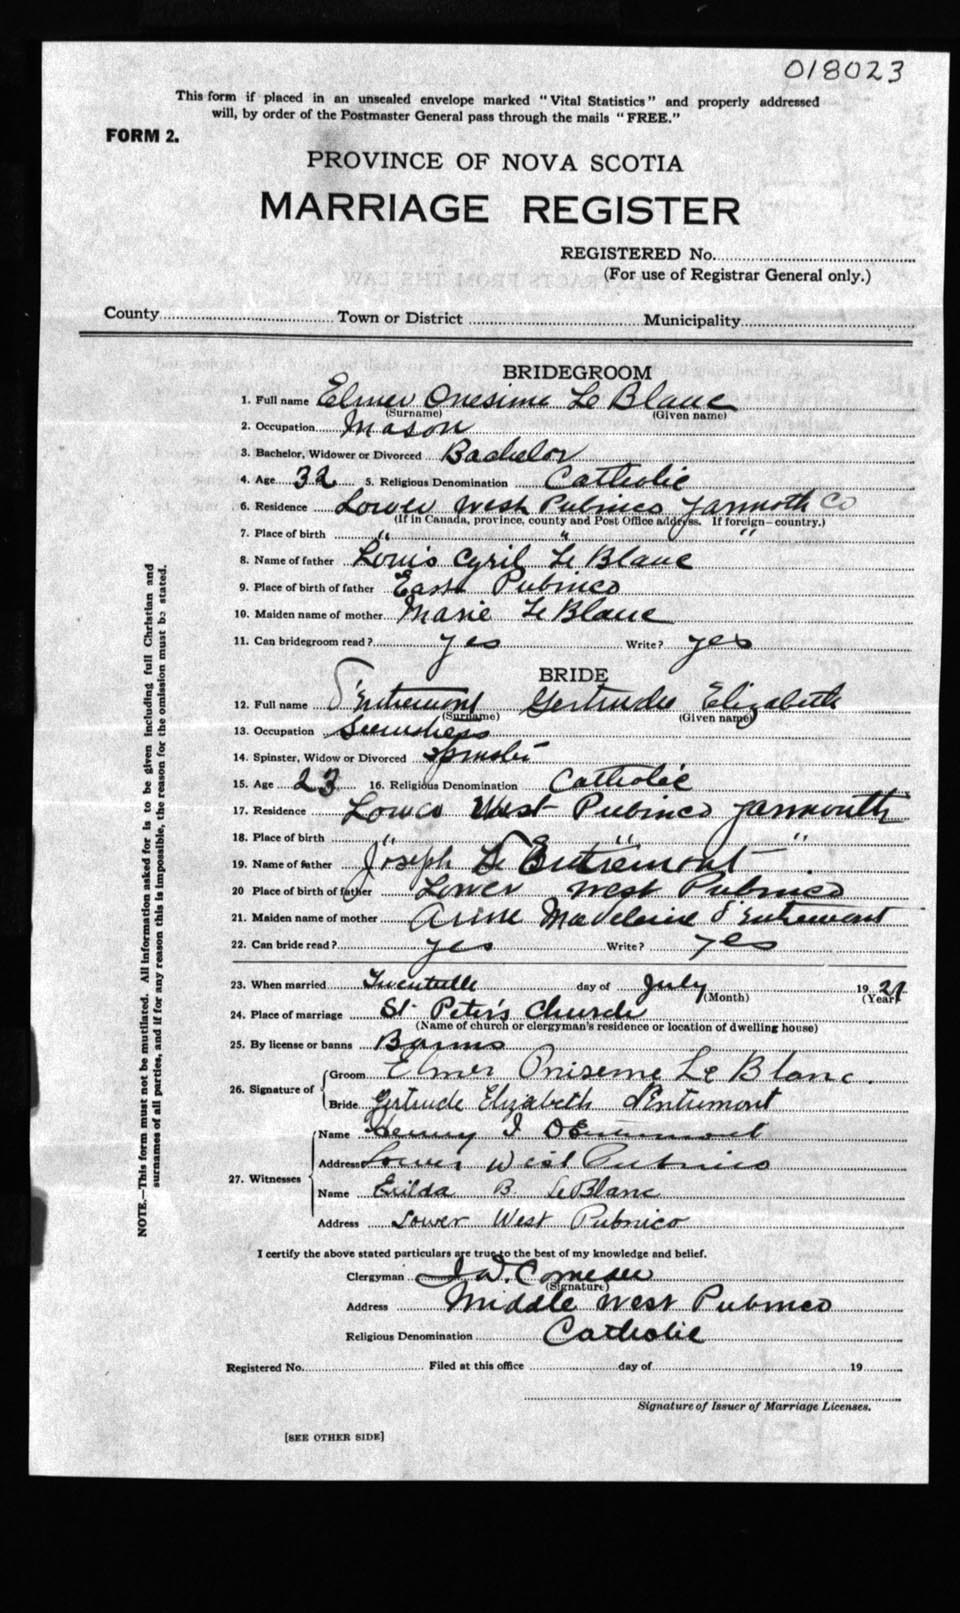 018023
This form if placed in an unsealed envelope marked "Vital Statistics" and properly addressed
will, by order of the Postmaster General pass through the mails "FREE."
FORM 2.
PROVINCE OF NOVA SCOTIA
MARRIAGE REGISTER
REGISTERED No.
(For use of Registrar General only.)
County Town or District Municipality
BRIDEGROOM
1. Full name Elmer Onesime Le Blanc
(Surname) (Given name)
2. Occupation Mason
3. Bachelor, Widower or Divorced Bachelor
4. Age 32 5. Religious Denomination Catholic
6. Residence Lower West Pubnico Yarmoth Co
(If in Canada, province, county and Post Office address. If foreign—country.)
7. Place of birth " " "
8. Name of father Louis Cyril Le Blanc
9. Place of birth of father East Pubnico
10. Maiden name of mother Marie Le Blanc
11. Can bridegroom read? yes Write? yes
BRIDE
12. Full name d'Entremont Gertrude Elizabeth
(Surname) (Given name)
13. Occupation
14. Spinster, Widow or Divorced Spinster
15. Age 23 16. Religious Denomination Catholic
17. Residence Lower West Pubnico Yarmouth
18. Place of birth " " "
19. Name of father Joseph D'Entremont
20 Place of birth of father Lower West Pubnico
21. Maiden name of mother Madeleine d'Entremont
22. Can bride read? yes Write? yes
23. When married day of July 19
(Month) (Year)
24. Place of marriage St. Peter's Church
(Name of church or clergyman's residence or location of dwelling house)
25. By license or banns Banns
26. Signature of Groom Elmer Oniseme Le Blanc.
Bride Gertrude Elizabeth d'Entremont
27. Witnesses Name
Address Lower West Pubnico
Name B. LeBlanc
Address Lower West Pubnico
I certify the above stated particulars are true to the best of my knowledge and belief.
Clergyman W. Comeau
(Signature)
Address Middle West Pubnico
Religious Denomination Catholic
Registered No. Filed at this office day of 19
Signature of Issuer of Marriage Licenses.
[SEE OTHER SIDE]
NOTE.—This form must not be mutilated. All information asked for is to be given including full Christian and
surnames of all parties, and if for any reason this is impossible, the reason for the omission must be stated.